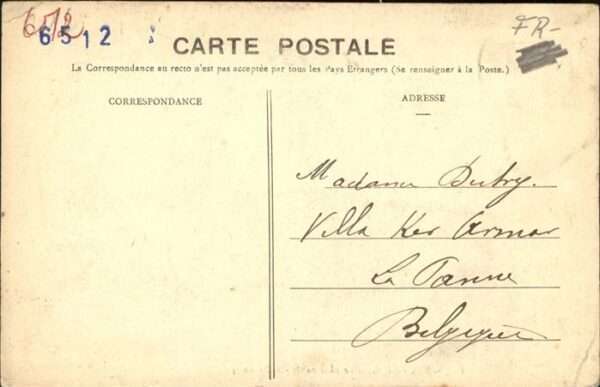 6512
6512
FR-
CARTE POSTALE
La Correspondance au recto n'est pas acceptée par tous les Pays Etrangers (Se renseigner à la Poste.)
CORRESPONDANCE
ADRESSE
Madame Dutry.
Villa Ker Armor
La Panne
Belgique